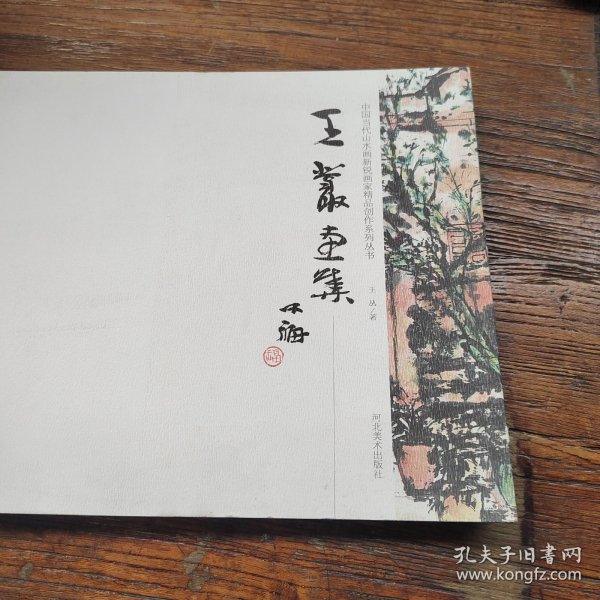 中国当代山水画新锐画家精品创作系列丛书
王叢画集
王 丛/著
河北美术出版社
孔夫子旧书网
www.kongfz.com